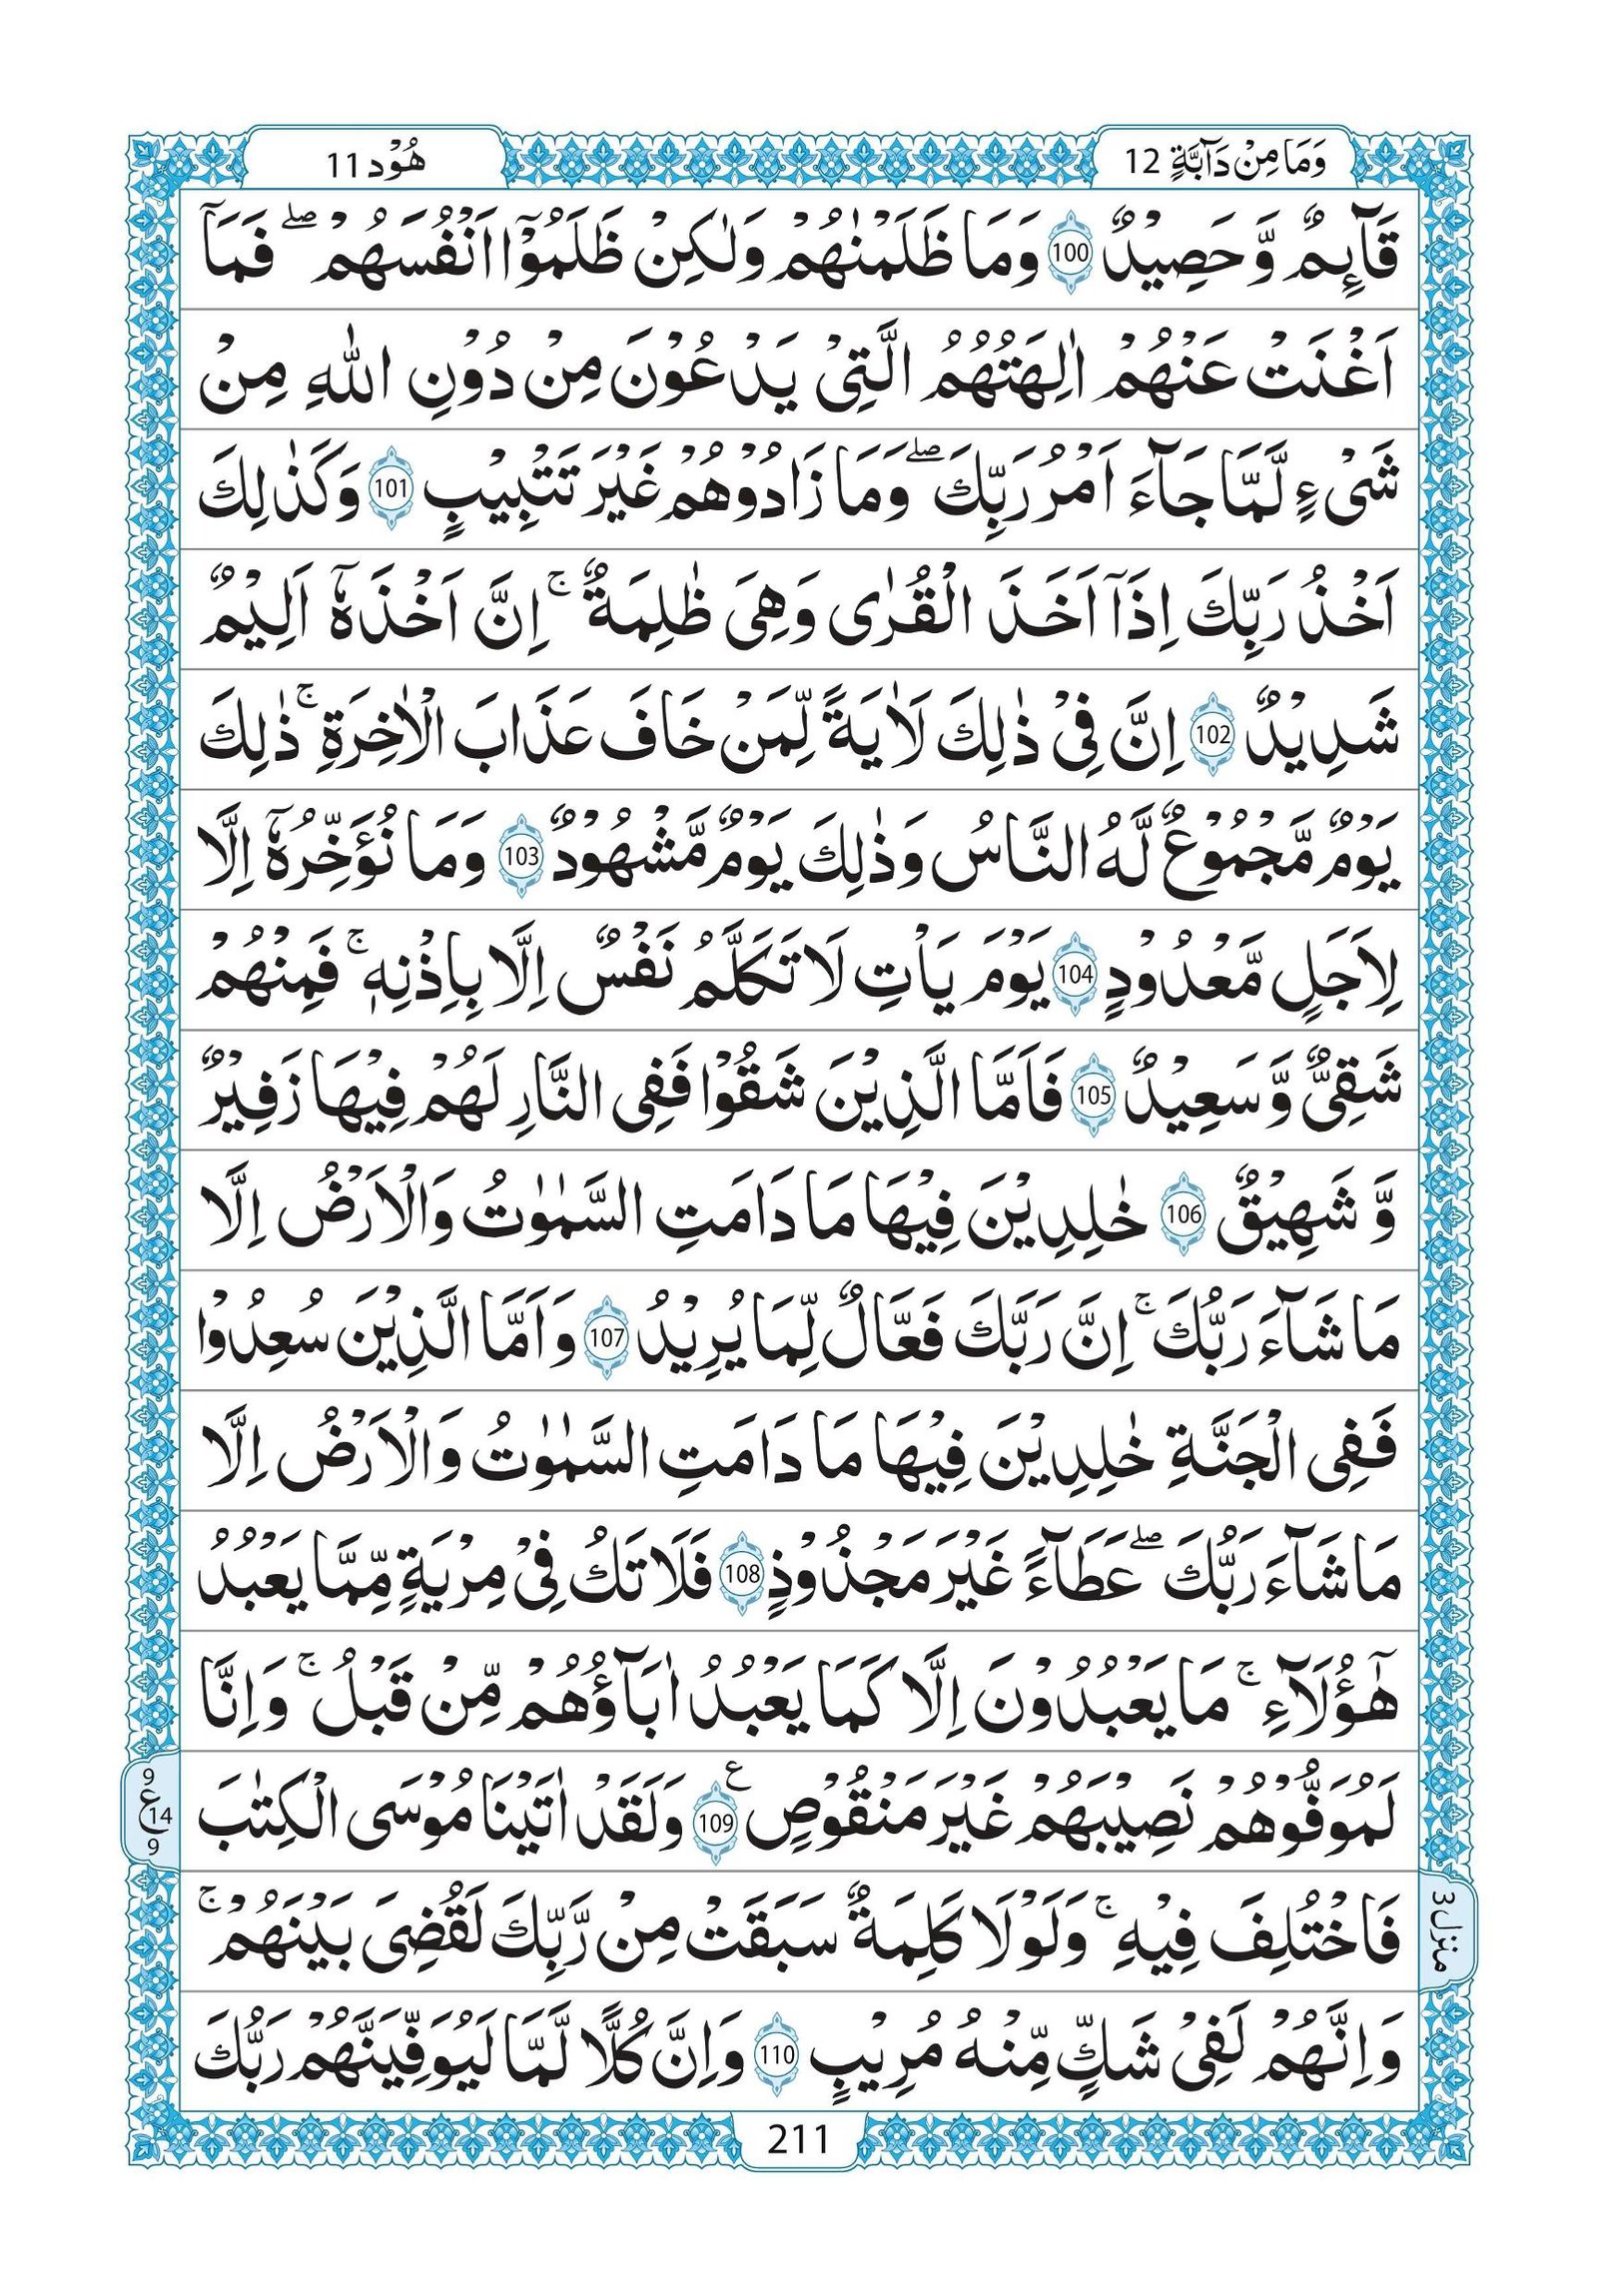 وَمَا مِنْ دَآبَّةٍ 12
هُوْد 11
قَآىِٕمٌ وَّ حَصِيْدٌ 100 وَمَا ظَلَمْنٰهُمْ وَلٰكِنْ ظَلَمُوْۤا اَنْفُسَهُمْ ۖ فَمَاۤ
اَغْنَتْ عَنْهُمْ اٰلِهَتُهُمُ الَّتِيْ يَدْعُوْنَ مِنْ دُوْنِ اللّٰهِ مِنْ
شَيْءٍ لَّمَّا جَآءَ اَمْرُ رَبِّكَ ۖ وَمَا زَادُوْهُمْ غَيْرَ تَتْبِيْبٍ 101 وَكَذٰلِكَ
اَخْذُ رَبِّكَ اِذَاۤ اَخَذَ الْقُرٰى وَهِيَ ظٰلِمَةٌ ۚ اِنَّ اَخْذَهٗۤ اَلِيْمٌ
شَدِيْدٌ 102 اِنَّ فِيْ ذٰلِكَ لَاٰيَةً لِّمَنْ خَافَ عَذَابَ الْاٰخِرَةِ ۚ ذٰلِكَ
يَوْمٌ مَّجْمُوْعٌ لَّهُ النَّاسُ وَذٰلِكَ يَوْمٌ مَّشْهُوْدٌ 103 وَمَا نُؤَخِّرُهٗۤ اِلَّا
لِاَجَلٍ مَّعْدُوْدٍ 104 يَوْمَ يَاْتِ لَا تَكَلَّمُ نَفْسٌ اِلَّا بِاِذْنِهٖ ۚ فَمِنْهُمْ
شَقِيٌّ وَّ سَعِيْدٌ 105 فَاَمَّا الَّذِيْنَ شَقُوْا فَفِي النَّارِ لَهُمْ فِيْهَا زَفِيْرٌ
وَّ شَهِيْقٌ 106 خٰلِدِيْنَ فِيْهَا مَا دَامَتِ السَّمٰوٰتُ وَالْاَرْضُ اِلَّا
مَا شَآءَ رَبُّكَ ۚ اِنَّ رَبَّكَ فَعَّالٌ لِّمَا يُرِيْدُ 107 وَاَمَّا الَّذِيْنَ سُعِدُوْا
فَفِي الْجَنَّةِ خٰلِدِيْنَ فِيْهَا مَا دَامَتِ السَّمٰوٰتُ وَالْاَرْضُ اِلَّا
مَا شَآءَ رَبُّكَ ۖ عَطَآءً غَيْرَ مَجْذُوْذٍ 108 فَلَا تَكُ فِيْ مِرْيَةٍ مِّمَّا يَعْبُدُ
هٰۤؤُلَآءِ ۚ مَا يَعْبُدُوْنَ اِلَّا كَمَا يَعْبُدُ اٰبَآؤُهُمْ مِّنْ قَبْلُ ۚ وَاِنَّا
لَمُوَفُّوْهُمْ نَصِيْبَهُمْ غَيْرَ مَنْقُوْصٍ ع 109 وَلَقَدْ اٰتَيْنَا مُوْسَى الْكِتٰبَ
9
ع 14
9
فَاخْتُلِفَ فِيْهِ ۚ وَلَوْلَا كَلِمَةٌ سَبَقَتْ مِنْ رَّبِّكَ لَقُضِيَ بَيْنَهُمْ ۚ
منزل 3
وَاِنَّهُمْ لَفِيْ شَكٍّ مِّنْهُ مُرِيْبٍ 110 وَاِنَّ كُلًّا لَّمَّا لَيُوَفِّيَنَّهُمْ رَبُّكَ
211